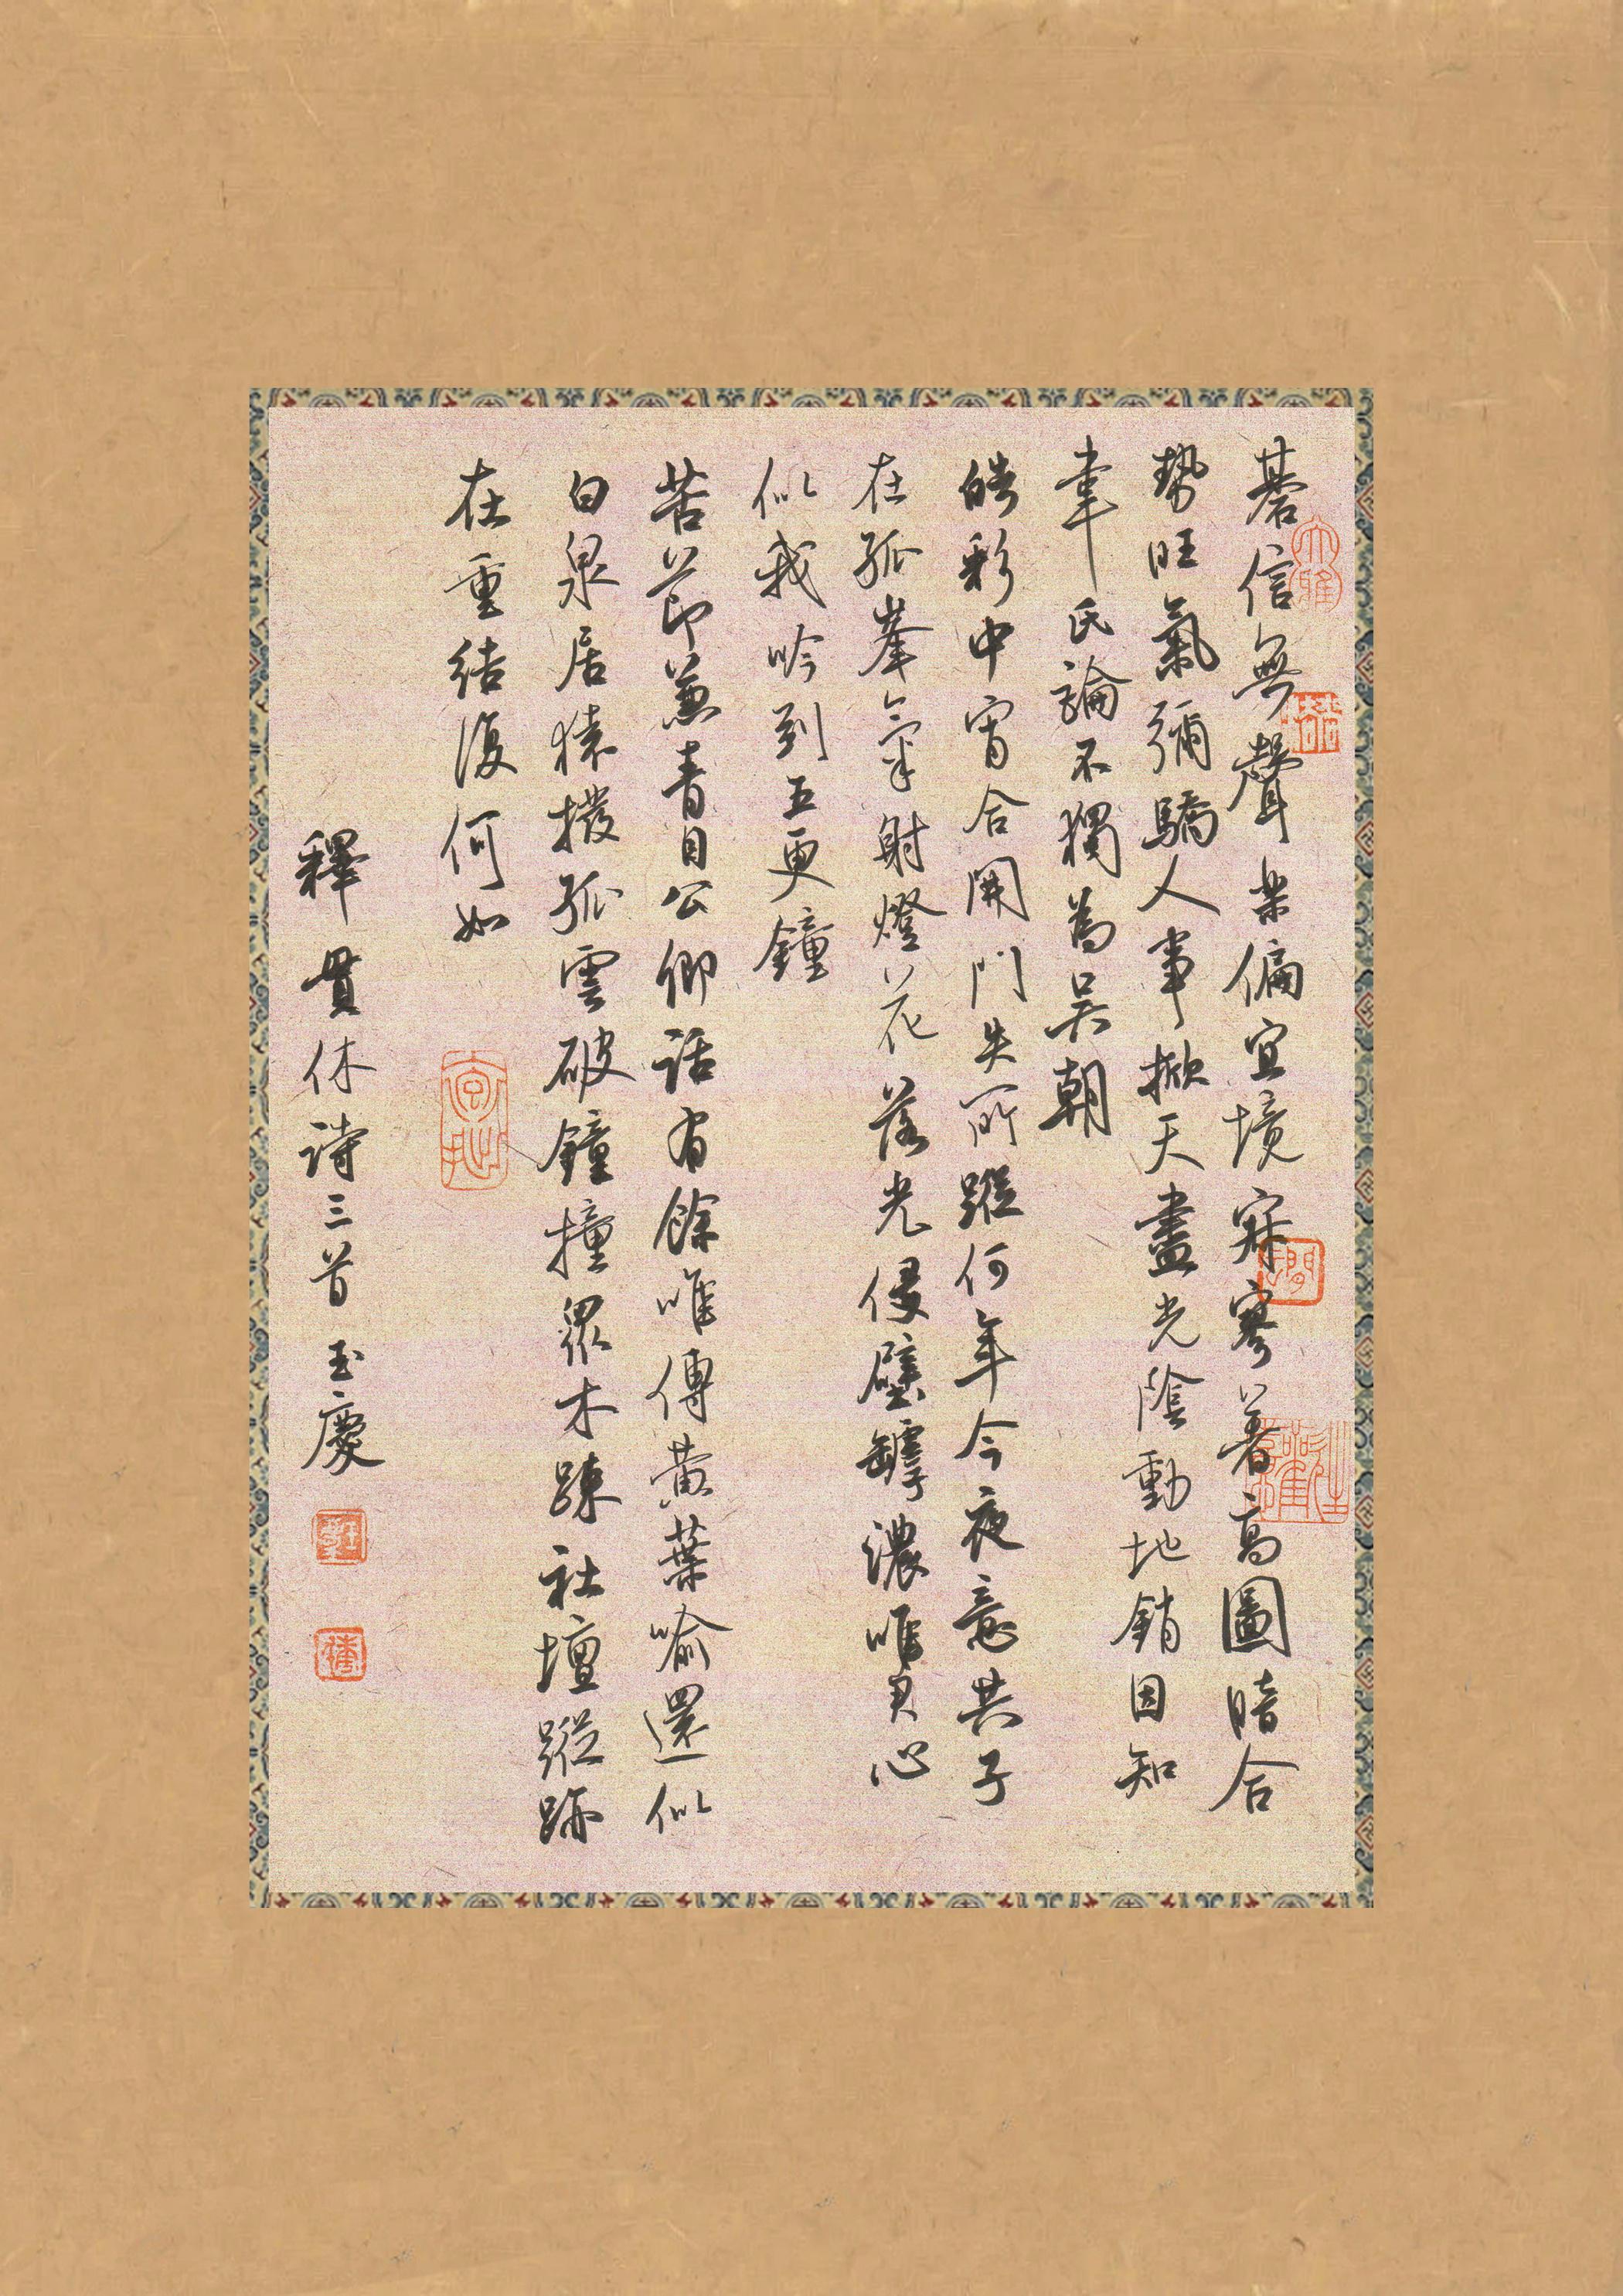 碁信無聲樂偏宜境寂寥著高圖暗合
勢旺氣彌驕人事掀天盡光陰動地銷因知
韋氏論不獨為吳朝
皓彩中宵合開門失所蹤何年今夜意共子
在孤峯氣射燈花落光侵壁罅濃唯君心
似我吟到五更鐘
苦節兼青目公卿話有餘唯傳黃葉喻還似
白泉居猿撥孤雲破鐘撞眾木疎社壇蹤跡
在重結復何如
釋貫休詩三首 玉慶
大雅